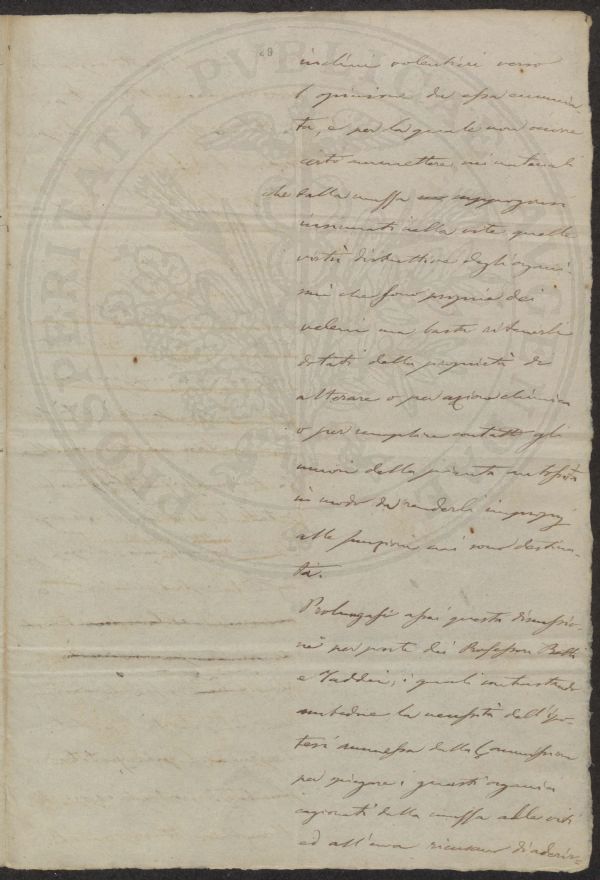 29
inclini volentieri verso
l'opinione da essa enuncia-
ta, e per la quale non occorre
certo ammettere nei materiali
che dalla muffa
insinuati nella vite quelle
virtù distruttive degli organi-
smi che sono proprie dei
veleni ma basta ritenerli
dotati della proprietà di
alterare o per azione chimica
o per semplice contatto gli
umori della pianta
in modo da renderli improprj
alle funzioni cui sono destina-
ti.
Prolungasi assai questa discussio-
ne per parte dei Professori
e Taddei, i quali contrastando
ambedue la necessità dell'Ipo-
tesi ammessa dalla Commissione
per spiegare i guasti organici
cagionati dalla muffa alle viti
ed all'uva ricusano d'aderire
PROSPERITATI PVBLICAE AVGENDAE